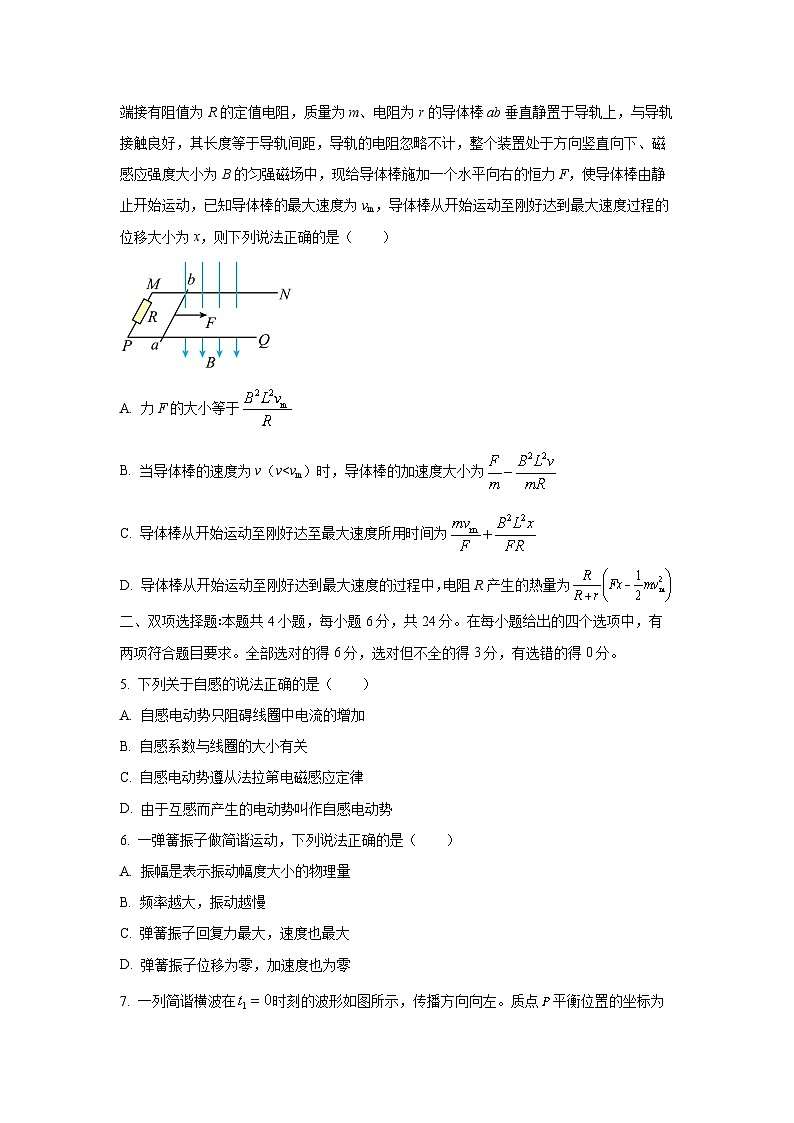 端接有阻值为 R 的定值电阻，质量为 m、电阻为 r 的导体棒 ab 垂直静置于导轨上，与导轨
接触良好，其长度等于导轨间距，导轨的电阻忽略不计，整个装置处于方向竖直向下、磁
感应强度大小为 B 的匀强磁场中，现给导体棒施加一个水平向右的恒力 F，使导体棒由静
止开始运动，已知导体棒的最大速度为 vₘ，导体棒从开始运动至刚好达到最大速度过程的
位移大小为 x，则下列说法正确的是（　　）
M b N
R F
P a Q
B
A. 力 F 的大小等于 \frac{B^2L^2v_m}{R}
B. 当导体棒的速度为 v（v<vₘ）时，导体棒的加速度大小为 \frac{F}{m}-\frac{B^2L^2v}{mR}
C. 导体棒从开始运动至刚好达至最大速度所用时间为 \frac{mv_m}{F}+\frac{B^2L^2x}{FR}
D. 导体棒从开始运动至刚好达到最大速度的过程中，电阻 R 产生的热量为 \frac{R}{R+r}\left(Fx-\frac{1}{2}mv_m^2\right)
二、双项选择题:本题共 4 小题，每小题 6 分，共 24 分。在每小题给出的四个选项中，有
两项符合题目要求。全部选对的得 6 分，选对但不全的得 3 分，有选错的得 0 分。
5. 下列关于自感的说法正确的是（　　）
A. 自感电动势只阻碍线圈中电流的增加
B. 自感系数与线圈的大小有关
C. 自感电动势遵从法拉第电磁感应定律
D. 由于互感而产生的电动势叫作自感电动势
6. 一弹簧振子做简谐运动，下列说法正确的是（　　）
A. 振幅是表示振动幅度大小的物理量
B. 频率越大，振动越慢
C. 弹簧振子回复力最大，速度也最大
D. 弹簧振子位移为零，加速度也为零
7. 一列简谐横波在 t₁ = 0 时刻的波形如图所示，传播方向向左。质点 P 平衡位置的坐标为